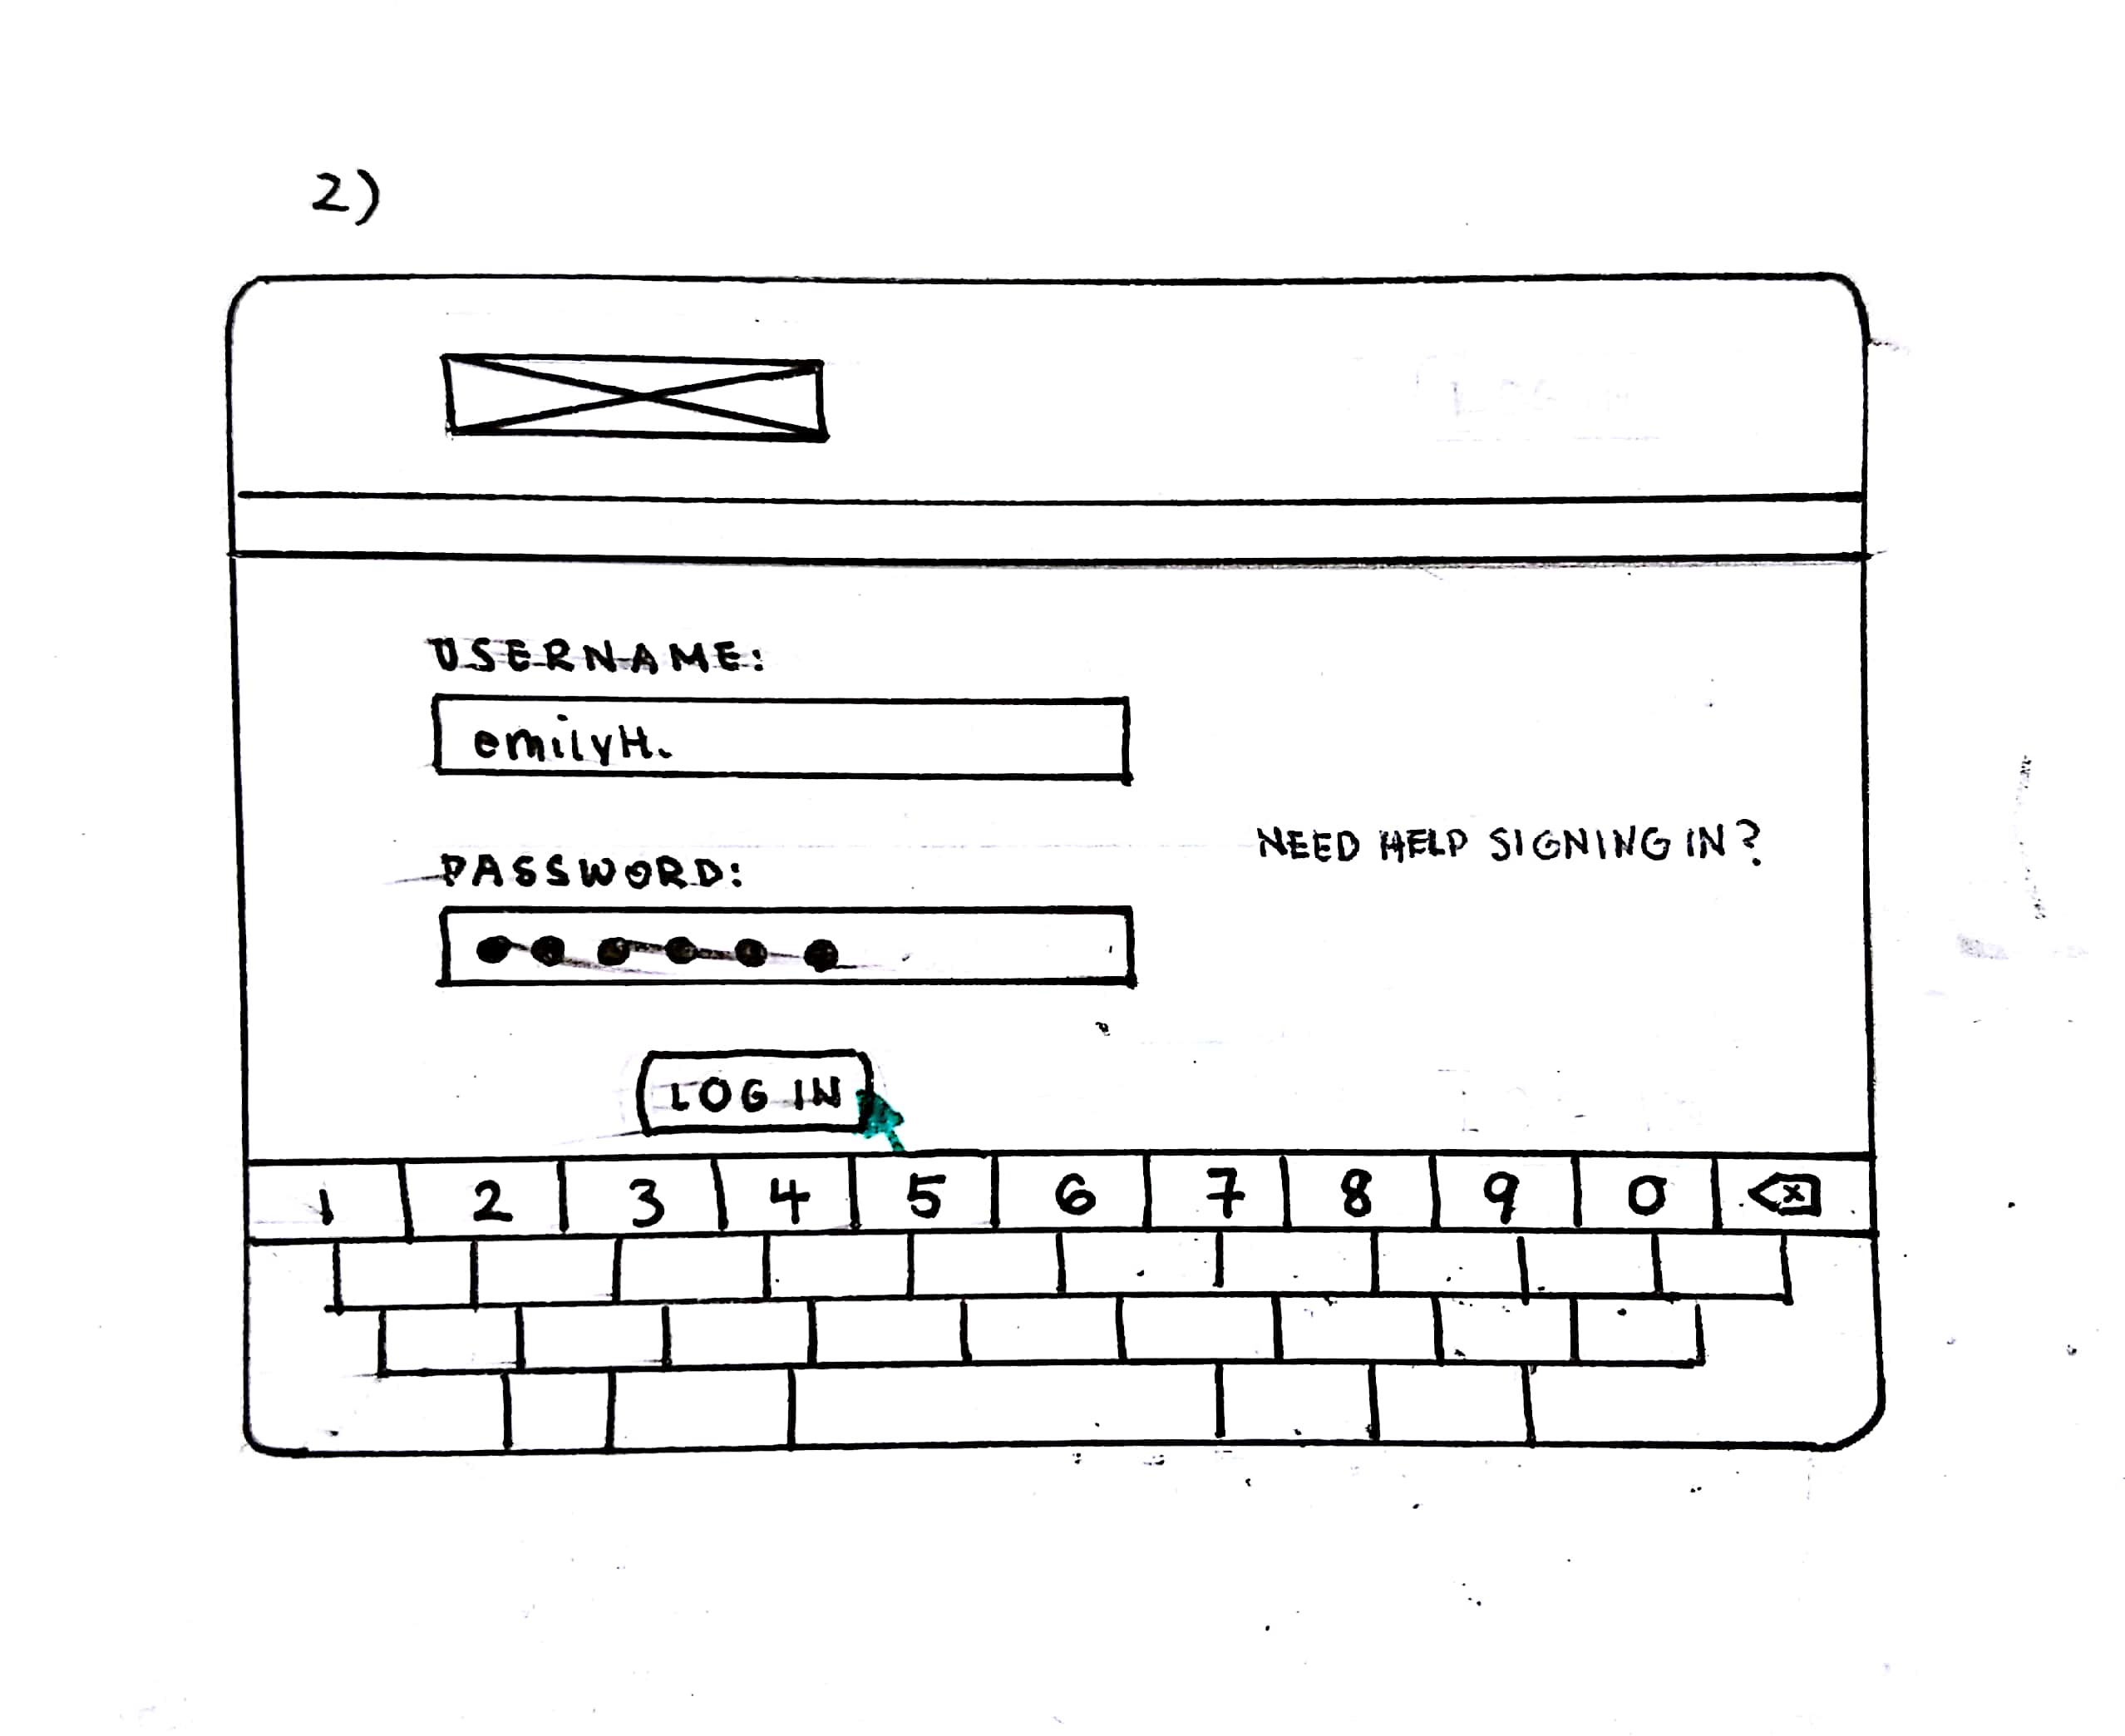 2)
USERNAME:
emilyH.
PASSWORD:
NEED HELP SIGNING IN?
LOG IN
1 2 3 4 5 6 7 8 9 0